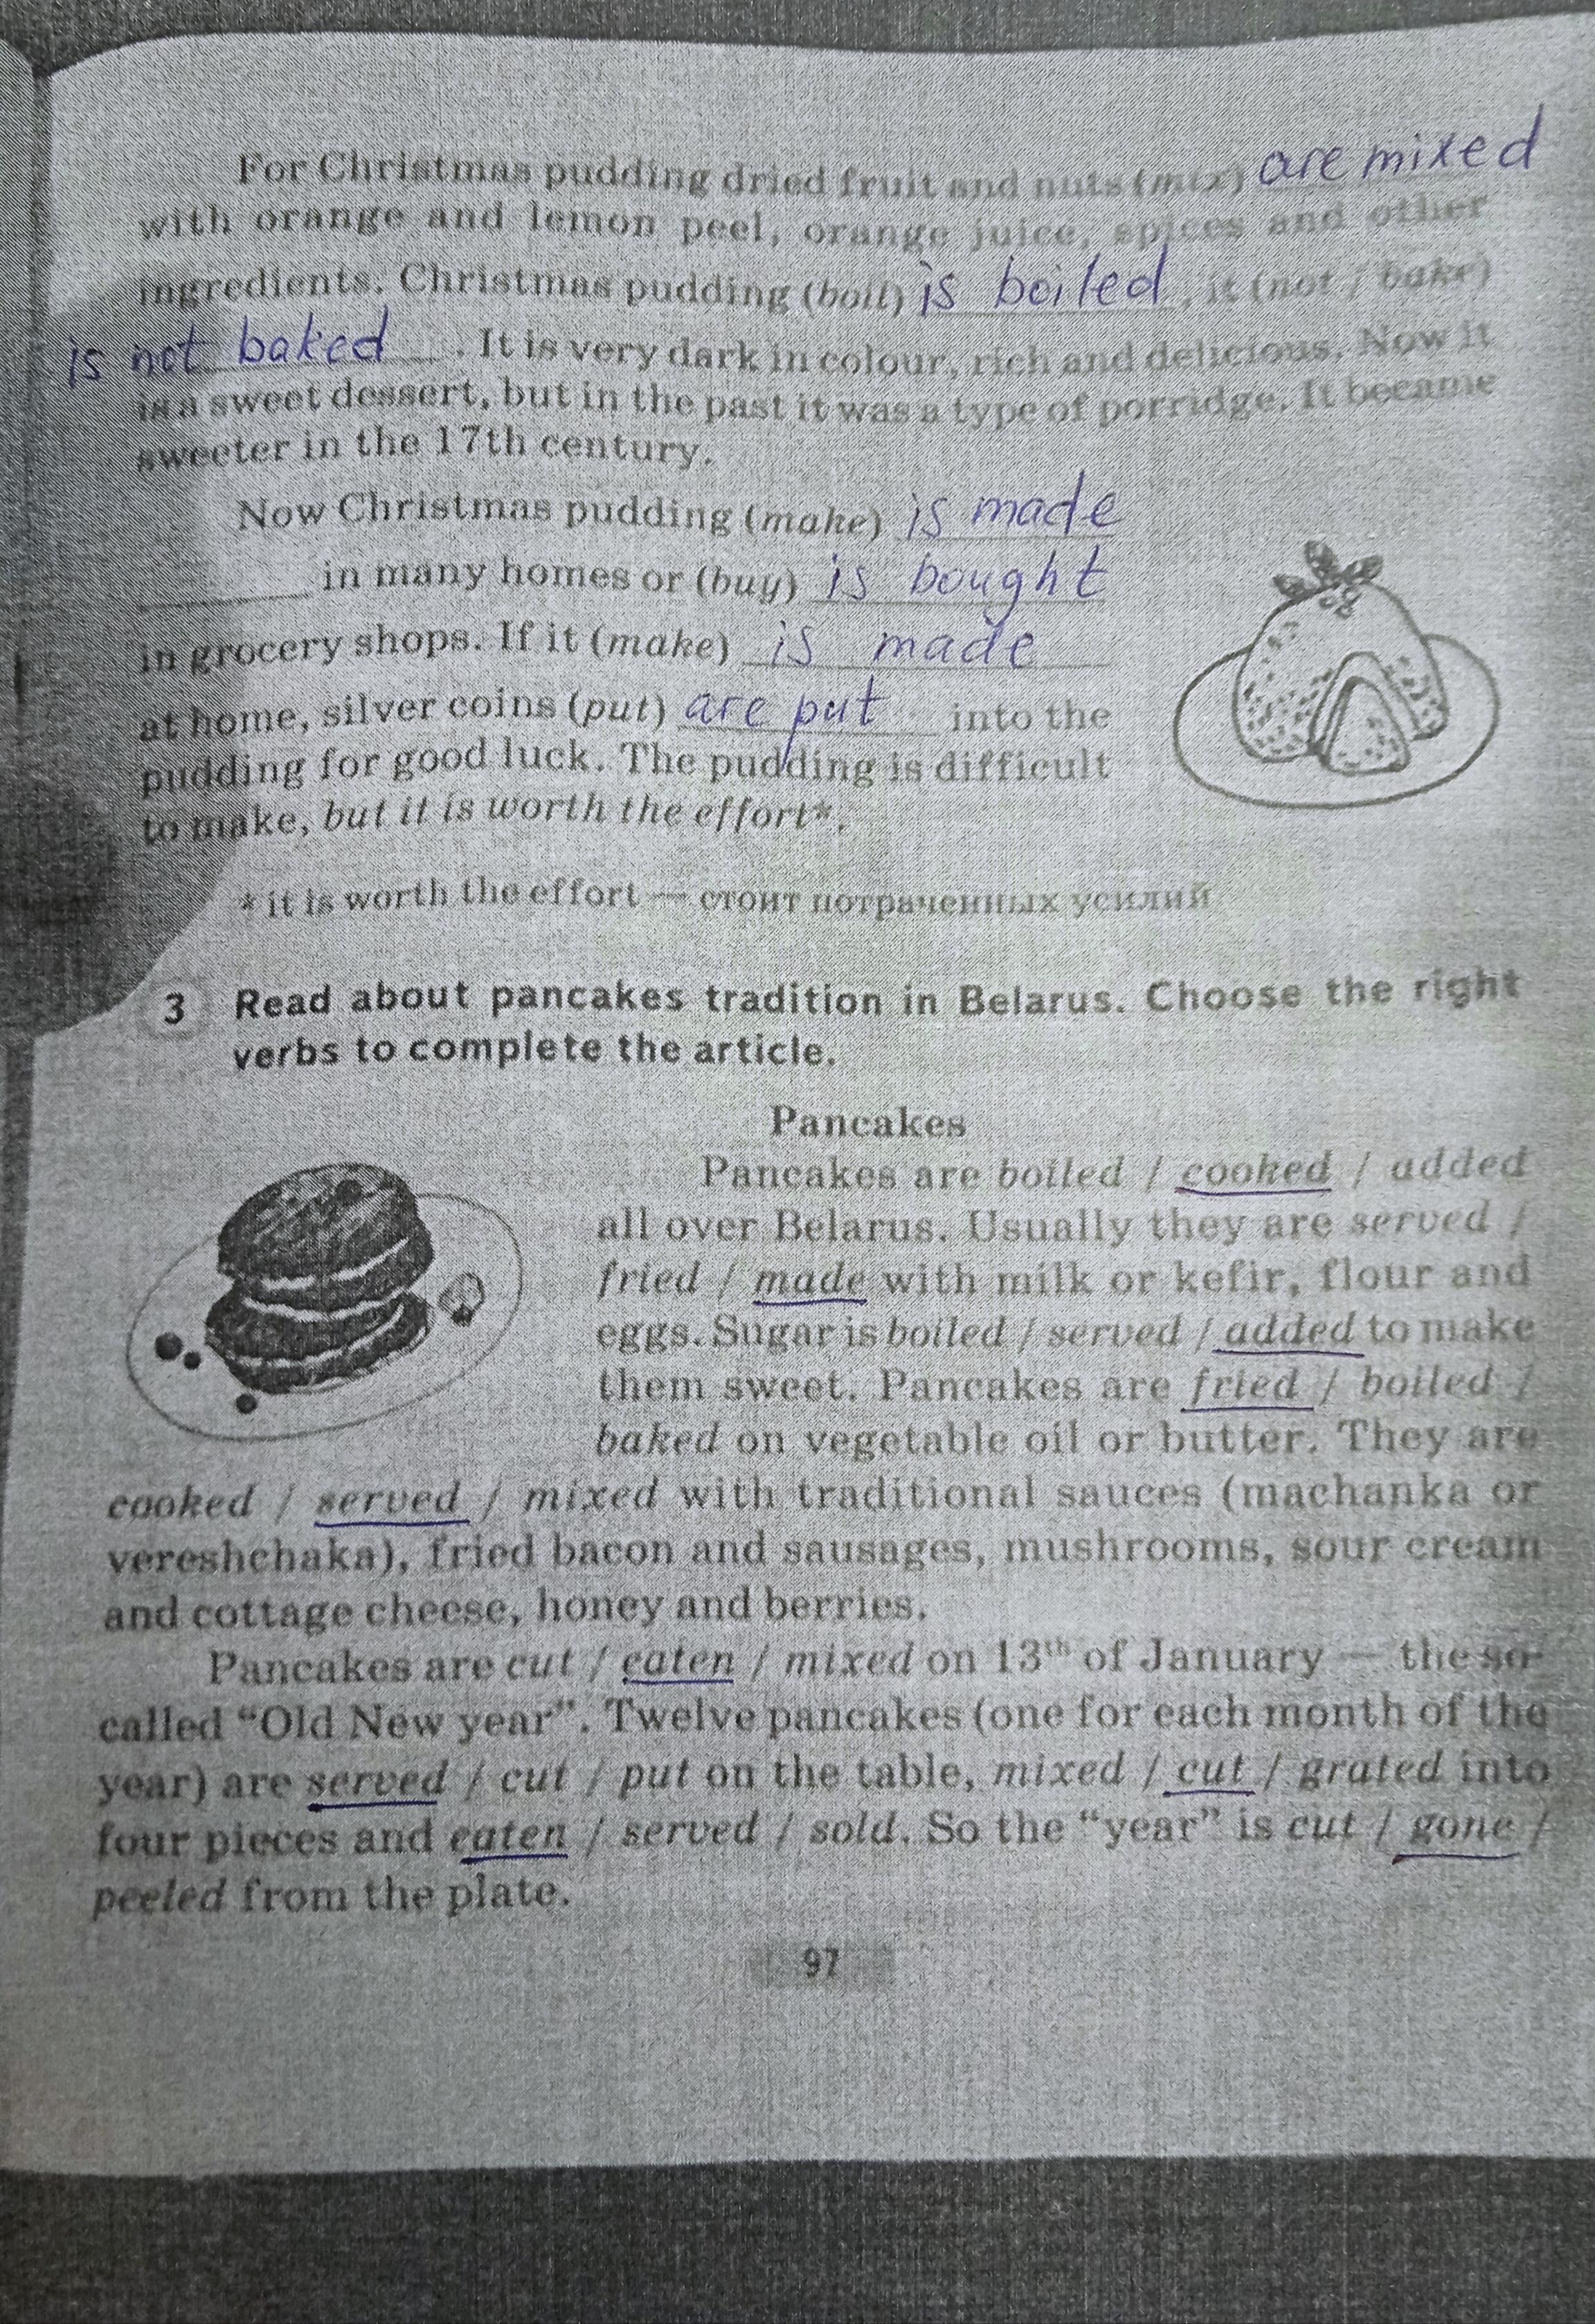 For Christmas pudding dried fruit and nuts (mix) are mixed
with orange and lemon peel, orange juice, spices and other
ingredients. Christmas pudding (boil) is boiled, it (not / bake)
is not baked. It is very dark in colour, rich and delicious. Now it
is a sweet dessert, but in the past it was a type of porridge. It became
sweeter in the 17th century.
Now Christmas pudding (make) is made
in many homes or (buy) is bought
in grocery shops. If it (make) is made
at home, silver coins (put) are put into the
pudding for good luck. The pudding is difficult
to make, but it is worth the effort*.
* it is worth the effort — стоит потраченных усилий
3 Read about pancakes tradition in Belarus. Choose the right
verbs to complete the article.
Pancakes
Pancakes are boiled / cooked / added
all over Belarus. Usually they are served /
fried / made with milk or kefir, flour and
eggs. Sugar is boiled / served / added to make
them sweet. Pancakes are fried / boiled /
baked on vegetable oil or butter. They are
cooked / served / mixed with traditional sauces (machanka or
vereshchaka), fried bacon and sausages, mushrooms, sour cream
and cottage cheese, honey and berries.
Pancakes are cut / eaten / mixed on 13th of January — the so-
called “Old New year”. Twelve pancakes (one for each month of the
year) are served / cut / put on the table, mixed / cut / grated into
four pieces and eaten / served / sold. So the “year” is cut / gone /
peeled from the plate.
97